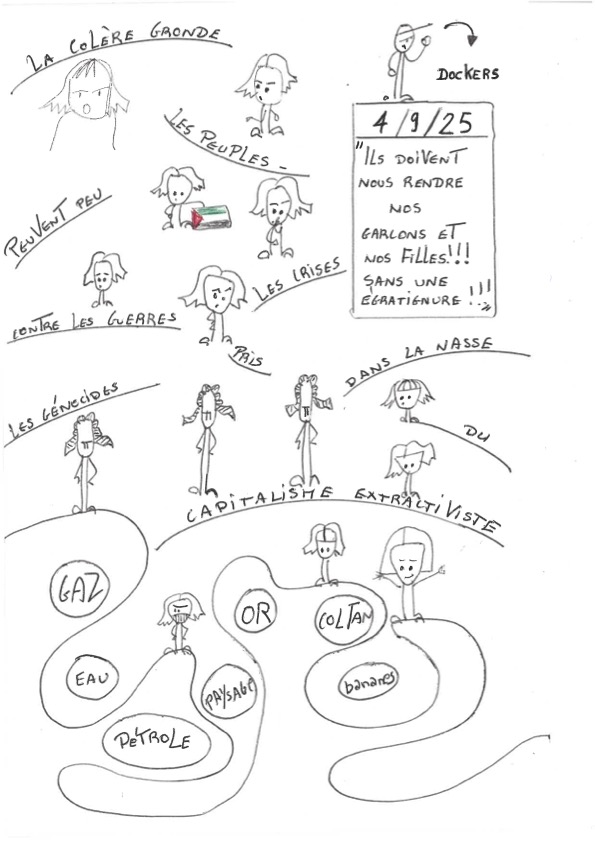 LA COLÈRE GRONDE
DOCKERS
4/9/25
"ILS DOIVENT
NOUS RENDRE
NOS
GARÇONS ET
NOS FILLES!!!
SANS UNE
ÉGRATIGNURE!!!"
LES PEUPLES_
PEUVENT PEU
CONTRE LES GUERRES
LES CRISES
LES GÉNOCIDES
PRIS
DANS LA NASSE
DU
CAPITALISME EXTRACTIVISTE
GAZ
EAU
PÉTROLE
PAYSAGE
OR
COLTAN
bananes